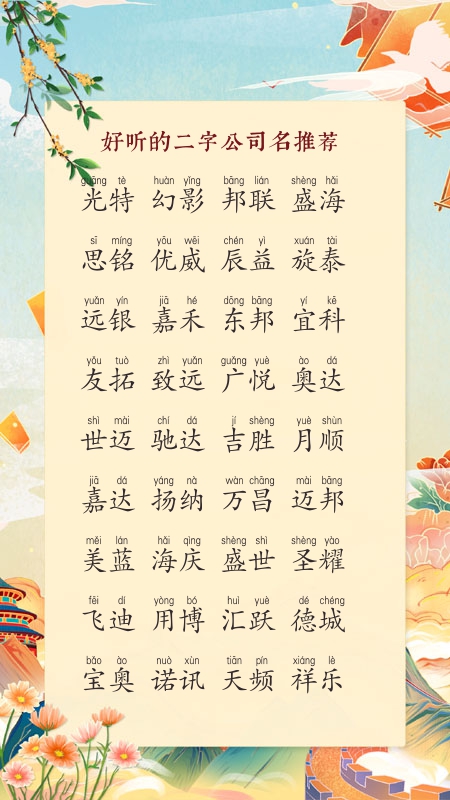 好听的二字公司名推荐
guāng tè huàn yǐng bāng lián shèng hǎi
光特 幻影 邦联 盛海
sī míng yōu wēi chén yì xuán tài
思铭 优威 辰益 旋泰
yuǎn yín jiā hé dōng bāng yí kē
远银 嘉禾 东邦 宜科
yǒu tuò zhì yuǎn guǎng yuè ào dá
友拓 致远 广悦 奥达
shì mài chí dá jí shèng yuè shùn
世迈 驰达 吉胜 月顺
jiā dá yáng nà wàn chāng mài bāng
嘉达 扬纳 万昌 迈邦
měi lán hǎi qìng shèng shì shèng yào
美蓝 海庆 盛世 圣耀
fēi dí yòng bó huì yuè dé chéng
飞迪 用博 汇跃 德城
bǎo ào nuò xùn tiān pín xiáng lè
宝奥 诺讯 天频 祥乐